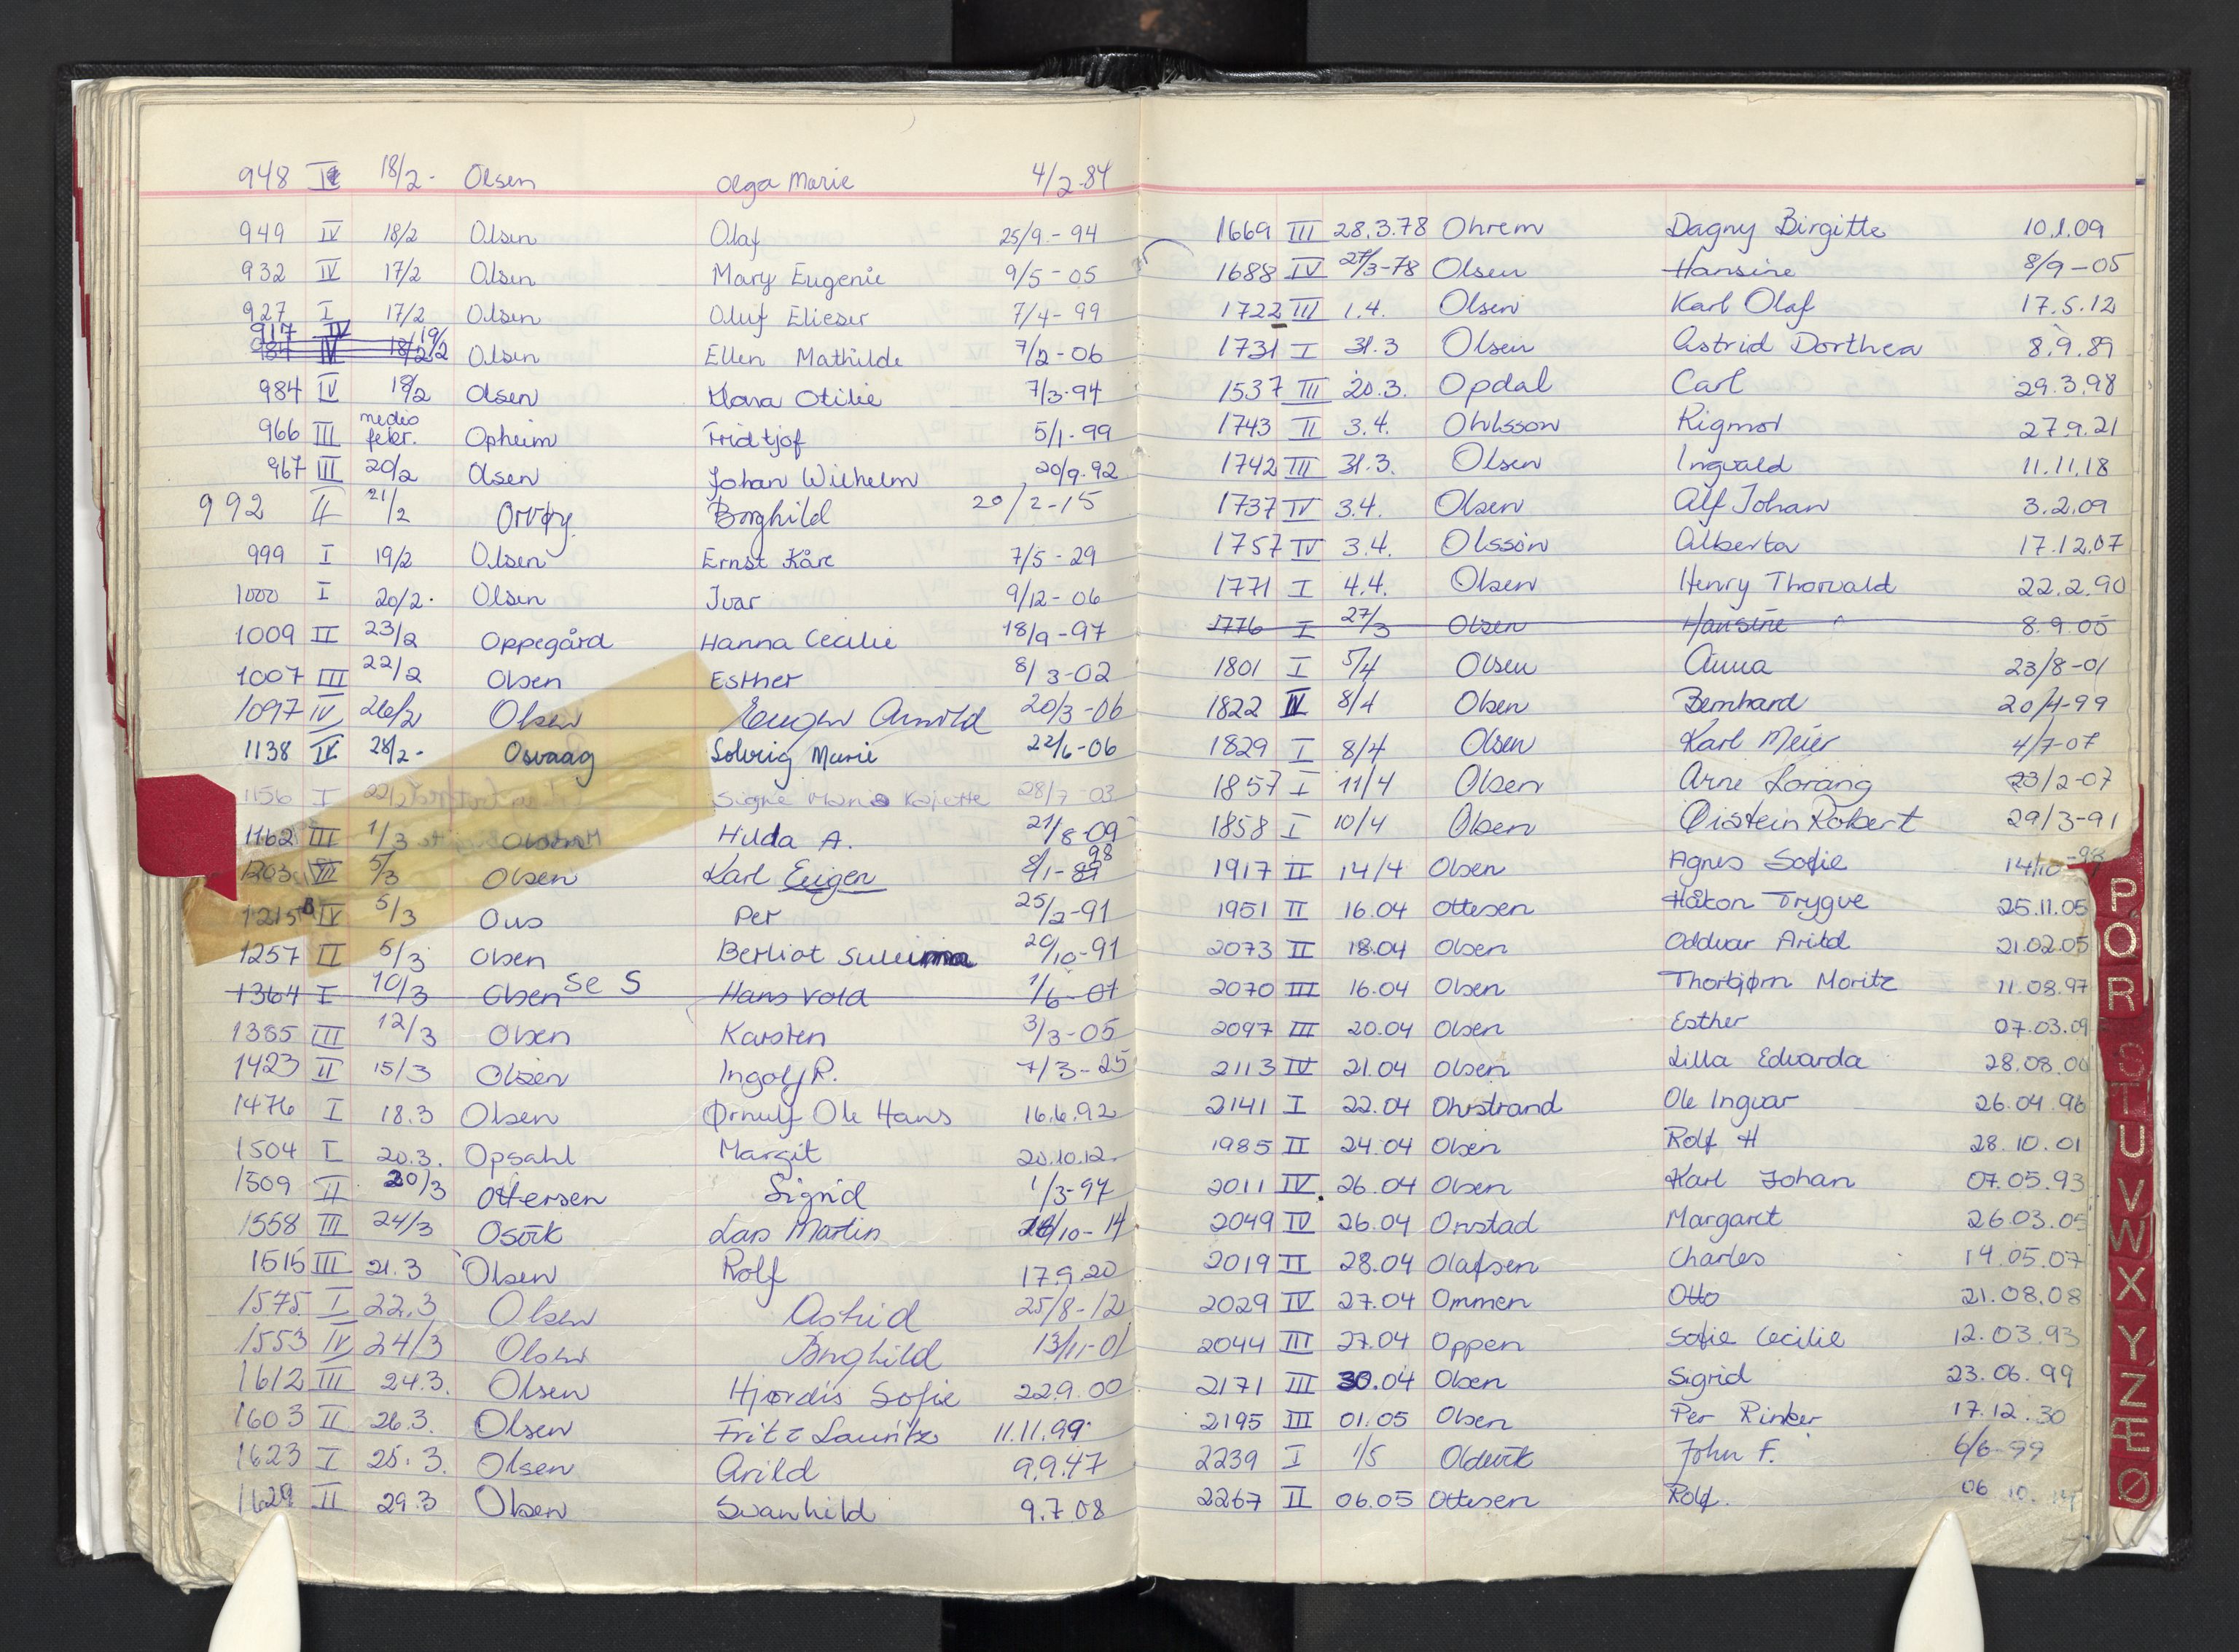 948 18/2- Olsen Olga Marie 4/2-84
949 IV 18/2 Olsen Olaf 25/9-94
932 IV 17/2 Olsen Mary Eugenie 9/5-05
927 I 17/2 Olsen Oluf Elieser 7/4-99
917 IV 19/2
984 IV 18/2 Olsen Ellen Mathilde 7/2-06
984 IV 18/2 Olsen Klara Otilie 7/3-94
966 III medio febr. Opheim Fridtjof 5/1-99
967 III 20/2 Olsen Johan Wilhelm 20/9-92
992 II 21/2 Orvøy Borghild 20/2-15
999 I 19/2 Olsen Ernst Kåre 7/5-29
1000 I 20/2- Olsen Ivar 9/12-06
1009 II 23/2 Oppegård Hanna Cecilie 18/9-97
1007 III 22/2 Olsen Esther 8/3-02
1097 IV 26/2 Olsen Eugen Arnold 20/3-06
1138 IV 28/2- Osvaag Solveig Marie 22/6-06
1156 I 22/2 Signe 28/7 03
1162 III 1/3 Hilda A. 21/8-09
1203 III 5/3 Olsen Karl Eugen 8/1-98
1215 IV 5/3 Ous Per 25/2-91
1257 II 5/3 Olsen Berliot 20/10-91
1364 I 10/3 Olsen Se S Hans Vold 1/6-07
1385 III 12/3 Olsen Karsten 3/3-05
1423 II 15/3 Olsen Ingolf R. 7/3-25
1476 I 18.3 Olsen Ørnulf Ole Hans 16.6.92
1504 I 20.3. Opsahl Margit 20.10.12.
1509 II 20/3 Ottersen Sigrid 1/3-97
1558 III 24/3 Osvik Lars Martin /10-14
1515 III 21.3 Olsen Rolf 17.9.20
1575 I 22.3 Olsen Astrid 25/8-12
1553 IV 24/3 Olsen Borghild 13/11-01
1612 III 24.3. Olsen Hjørdis Sofie 22.9.00
1603 II 26.3. Olsen Fritz Lauritz 11.11.99
1623 I 25.3. Olsen Arild 9.9.47
1629 II 29.3 Olsen Svanhild 9.7.08
1669 III 28.3.78 Ohrem Dagny Birgitte 10.1.09
1688 IV 27/3-78 Olsen Hansine 8/9-05
1722 III 1.4. Olsen Karl Olaf 17.5.12
1731 I 31.3 Olsen Astrid Dorthea 8.9.89
1537 III 20.3. Opdal Carl 29.3.98
1743 II 3.4. Ohlsson Rigmor 27.9.21
1742 III 31.3. Olsen Ingvald 11.11.18
1737 IV 3.4. Olsen Alf Johan 3.2.09
1757 IV 3.4. Olsson Alberta 17.12.07
1771 I 4.4. Olsen Henry Thorvald 22.2.90
1776 I 27/3 Olsen Hansine 8.9.05
1801 I 5/4 Olsen Anna 23/8-01
1822 IV 8/4 Olsen Bernhard 20/4-99
1829 I 8/4 Olsen Karl Meier 4/7-07
1857 I 11/4 Olsen Arne Lorang 23/2-07
1858 I 10/4 Olsen Øistein Robert 29/3-91
1917 II 14/4 Olsen Agnes Sofie 14/10
1951 II 16.04 Ottesen Håkon Trygve 25.11.05
2073 II 18.04 Olsen Oddvar Arild 21.02.05
2070 III 16.04 Olsen Thorbjørn Moritz 11.08.97
2097 III 20.04 Olsen Esther 07.03.09
2113 IV 21.04 Olsen Lilla Edvarda 28.08.00
2141 I 22.04 Ohrstrand Ole Ingvar 26.04.96
1985 II 24.04 Olsen Rolf H 28.10.01
2011 IV. 26.04 Olsen Karl Johan 07.05.93
2049 IV 26.04 Onstad Margaret 26.03.05
2019 II 28.04 Olafsen Charles 14.05.07
2029 IV 27.04 Ommen Otto 21.08.08
2044 III 27.04 Oppen Sofie Cecilie 12.03.93
2171 III 30.04 Olsen Sigrid 23.06.99
2195 III 01.05 Olsen Per Rinker 17.12.30
2239 I 1/5 Oldervik John F. 6/6-99
2267 II 06.05 Ottesen Rolf. 06 10
P
O
R
S
T
U
V
W
X
Y
Z
Æ
Ø